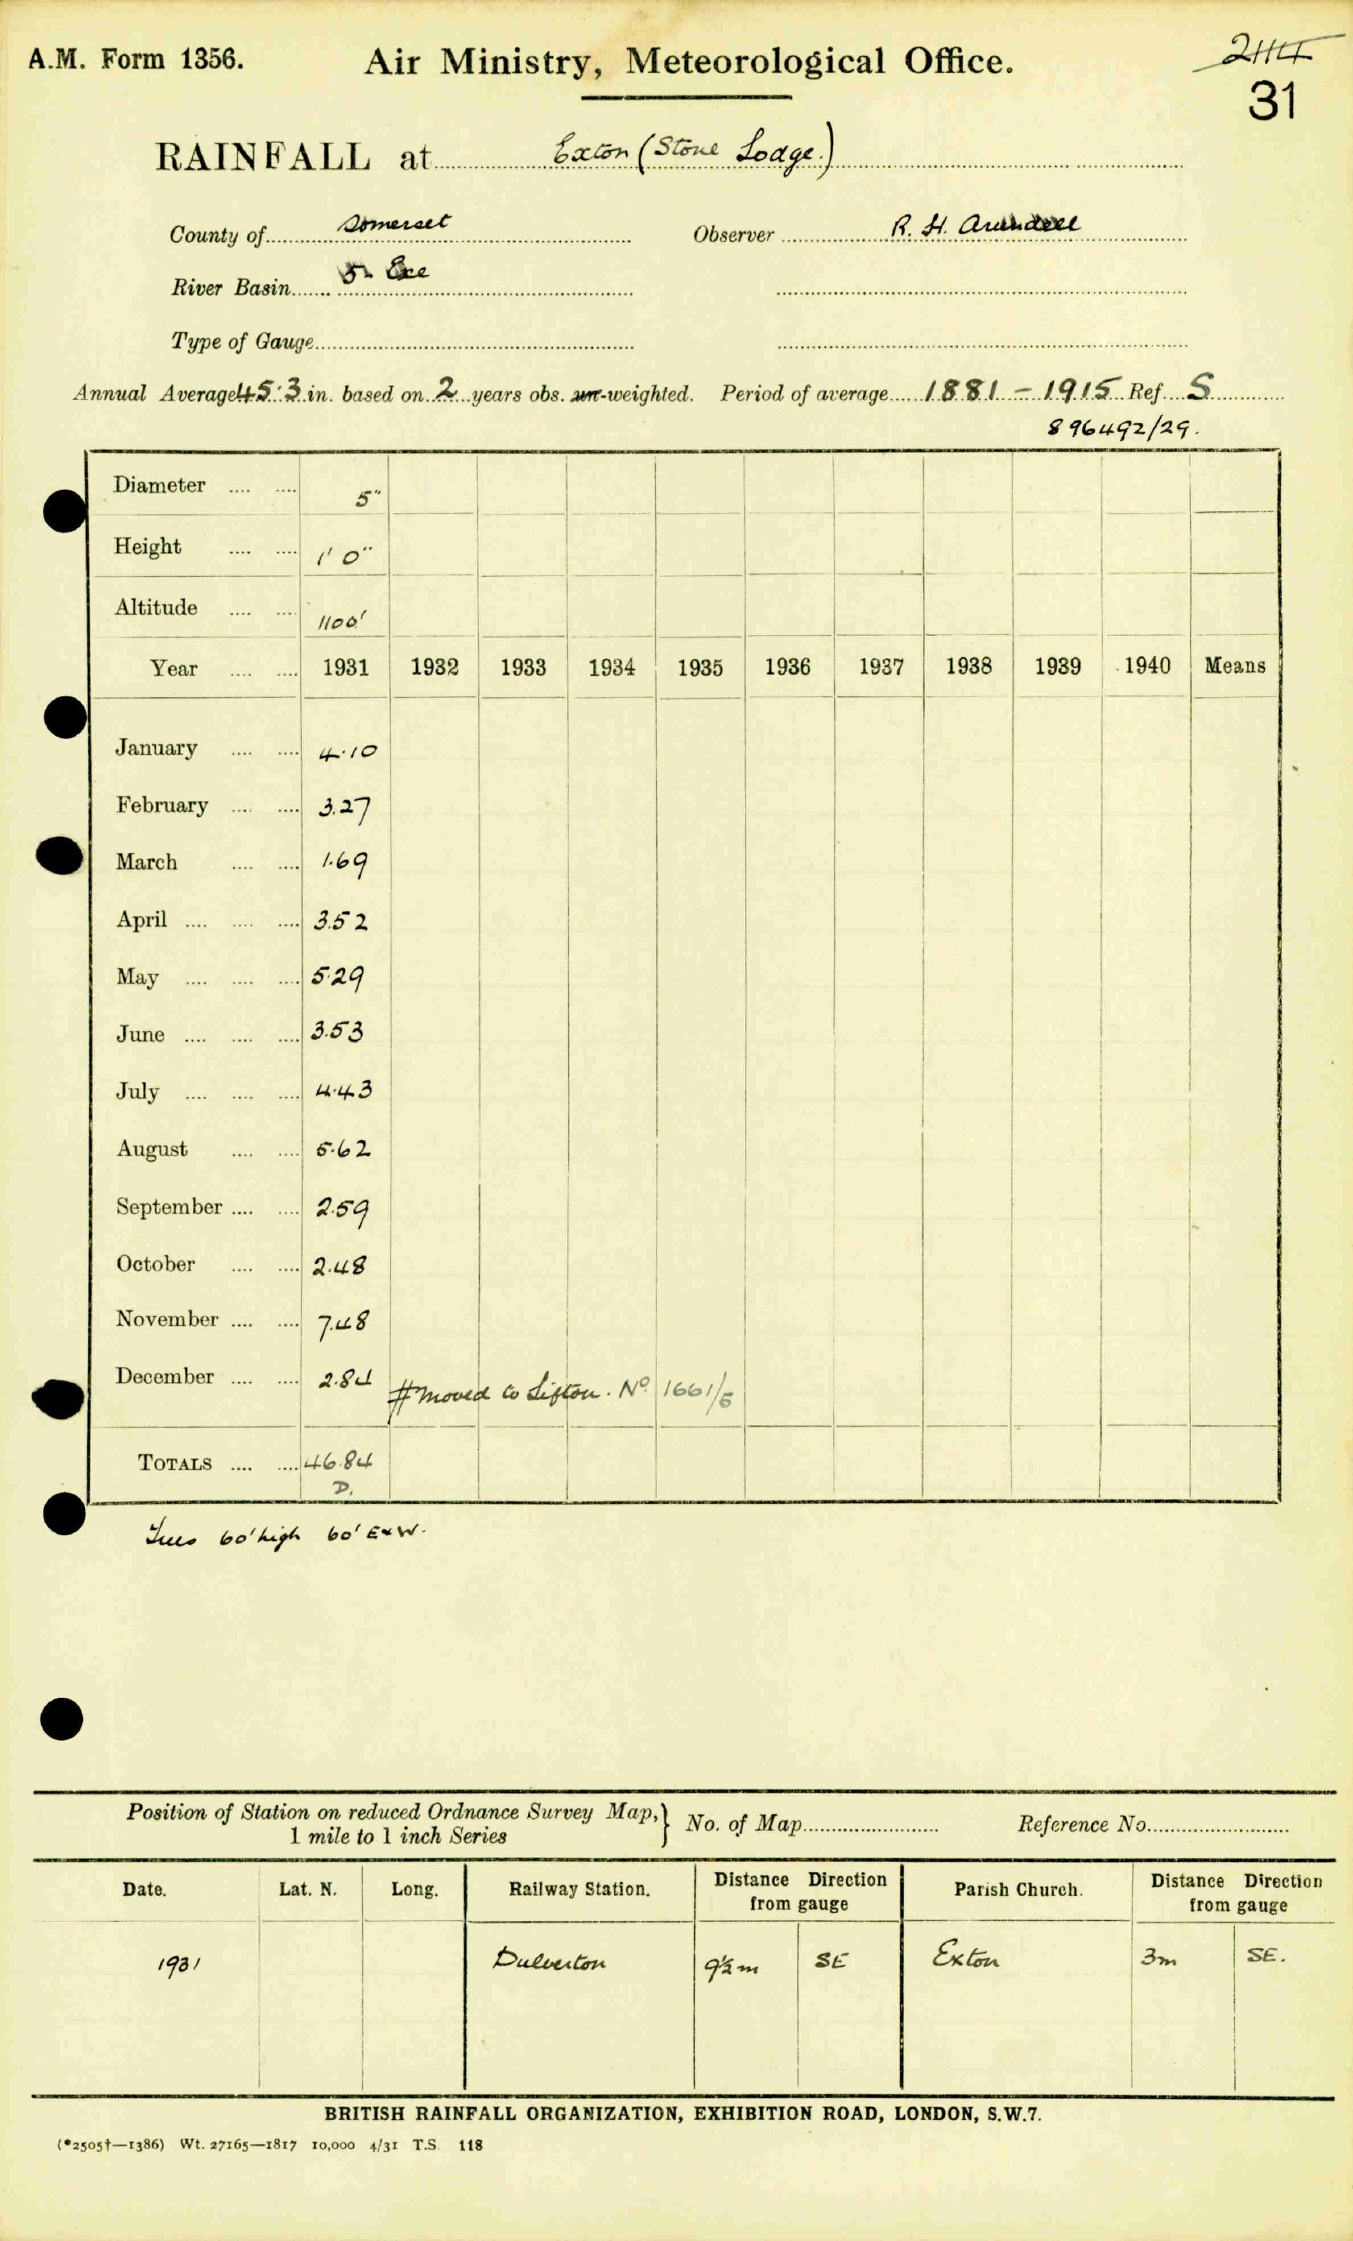 A.M. Form 1356.
Air Ministry, Meteorological Office.
31
RAINFALL at Exton (Stone Lodge.)
County of Somerset Observer R. H. Arundell
River Basin Exe
Type of Gauge
Annual Average 45.3 in. based on 2 years obs. un-weighted. Period of average 1881 - 1915 Ref. S
896492/29.
Diameter 5"
Height 1' 0"
Altitude 1100'
Year 1931 1932 1933 1934 1935 1936 1937 1938 1939 1940 Means
January 4.10
February 3.27
March 1.69
April 3.52
May 5.29
June 3.53
July 4.43
August 5.62
September 2.59
October 2.48
November 7.48
December 2.84 # moved to Lifton. No. 1661/6
TOTALS 46.84
D.
Trees 60' high 60' E & W.
Position of Station on reduced Ordnance Survey Map, } No. of Map Reference No.
1 mile to 1 inch Series
Date. Lat. N. Long. Railway Station. Distance Direction from gauge Parish Church. Distance Direction from gauge
1931 Dulverton 9½ m SE Exton 3m SE.
BRITISH RAINFALL ORGANIZATION, EXHIBITION ROAD, LONDON, S.W.7.
(*2505†—1386) Wt. 27165—1817 10,000 4/31 T.S. 118